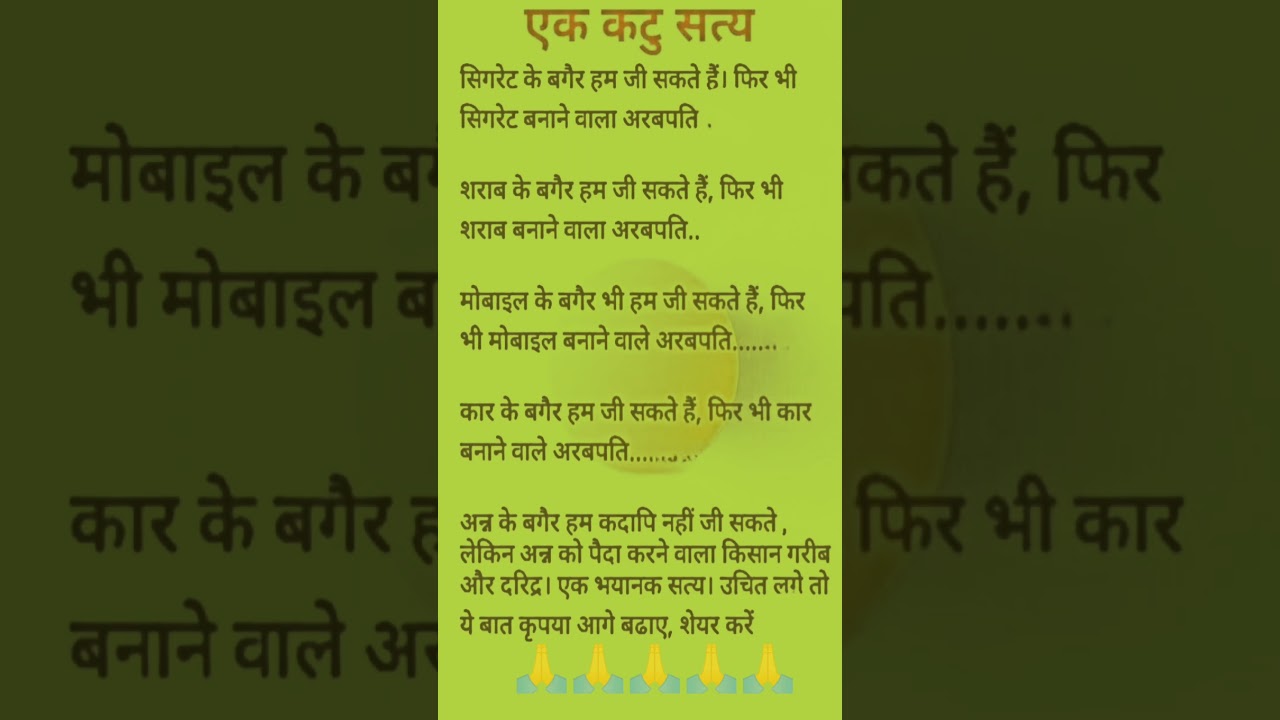 एक कटु सत्य
सिगरेट के बगैर हम जी सकते हैं। फिर भी
सिगरेट बनाने वाला अरबपति .
शराब के बगैर हम जी सकते हैं, फिर भी
शराब बनाने वाला अरबपति..
मोबाइल के बगैर भी हम जी सकते हैं, फिर
भी मोबाइल बनाने वाले अरबपति........
कार के बगैर हम जी सकते हैं, फिर भी कार
बनाने वाले अरबपति.........
अन्न के बगैर हम कदापि नहीं जी सकते ,
लेकिन अन्न को पैदा करने वाला किसान गरीब
और दरिद्र। एक भयानक सत्य। उचित लगे तो
ये बात कृपया आगे बढाए, शेयर करें
🙏🙏🙏🙏🙏